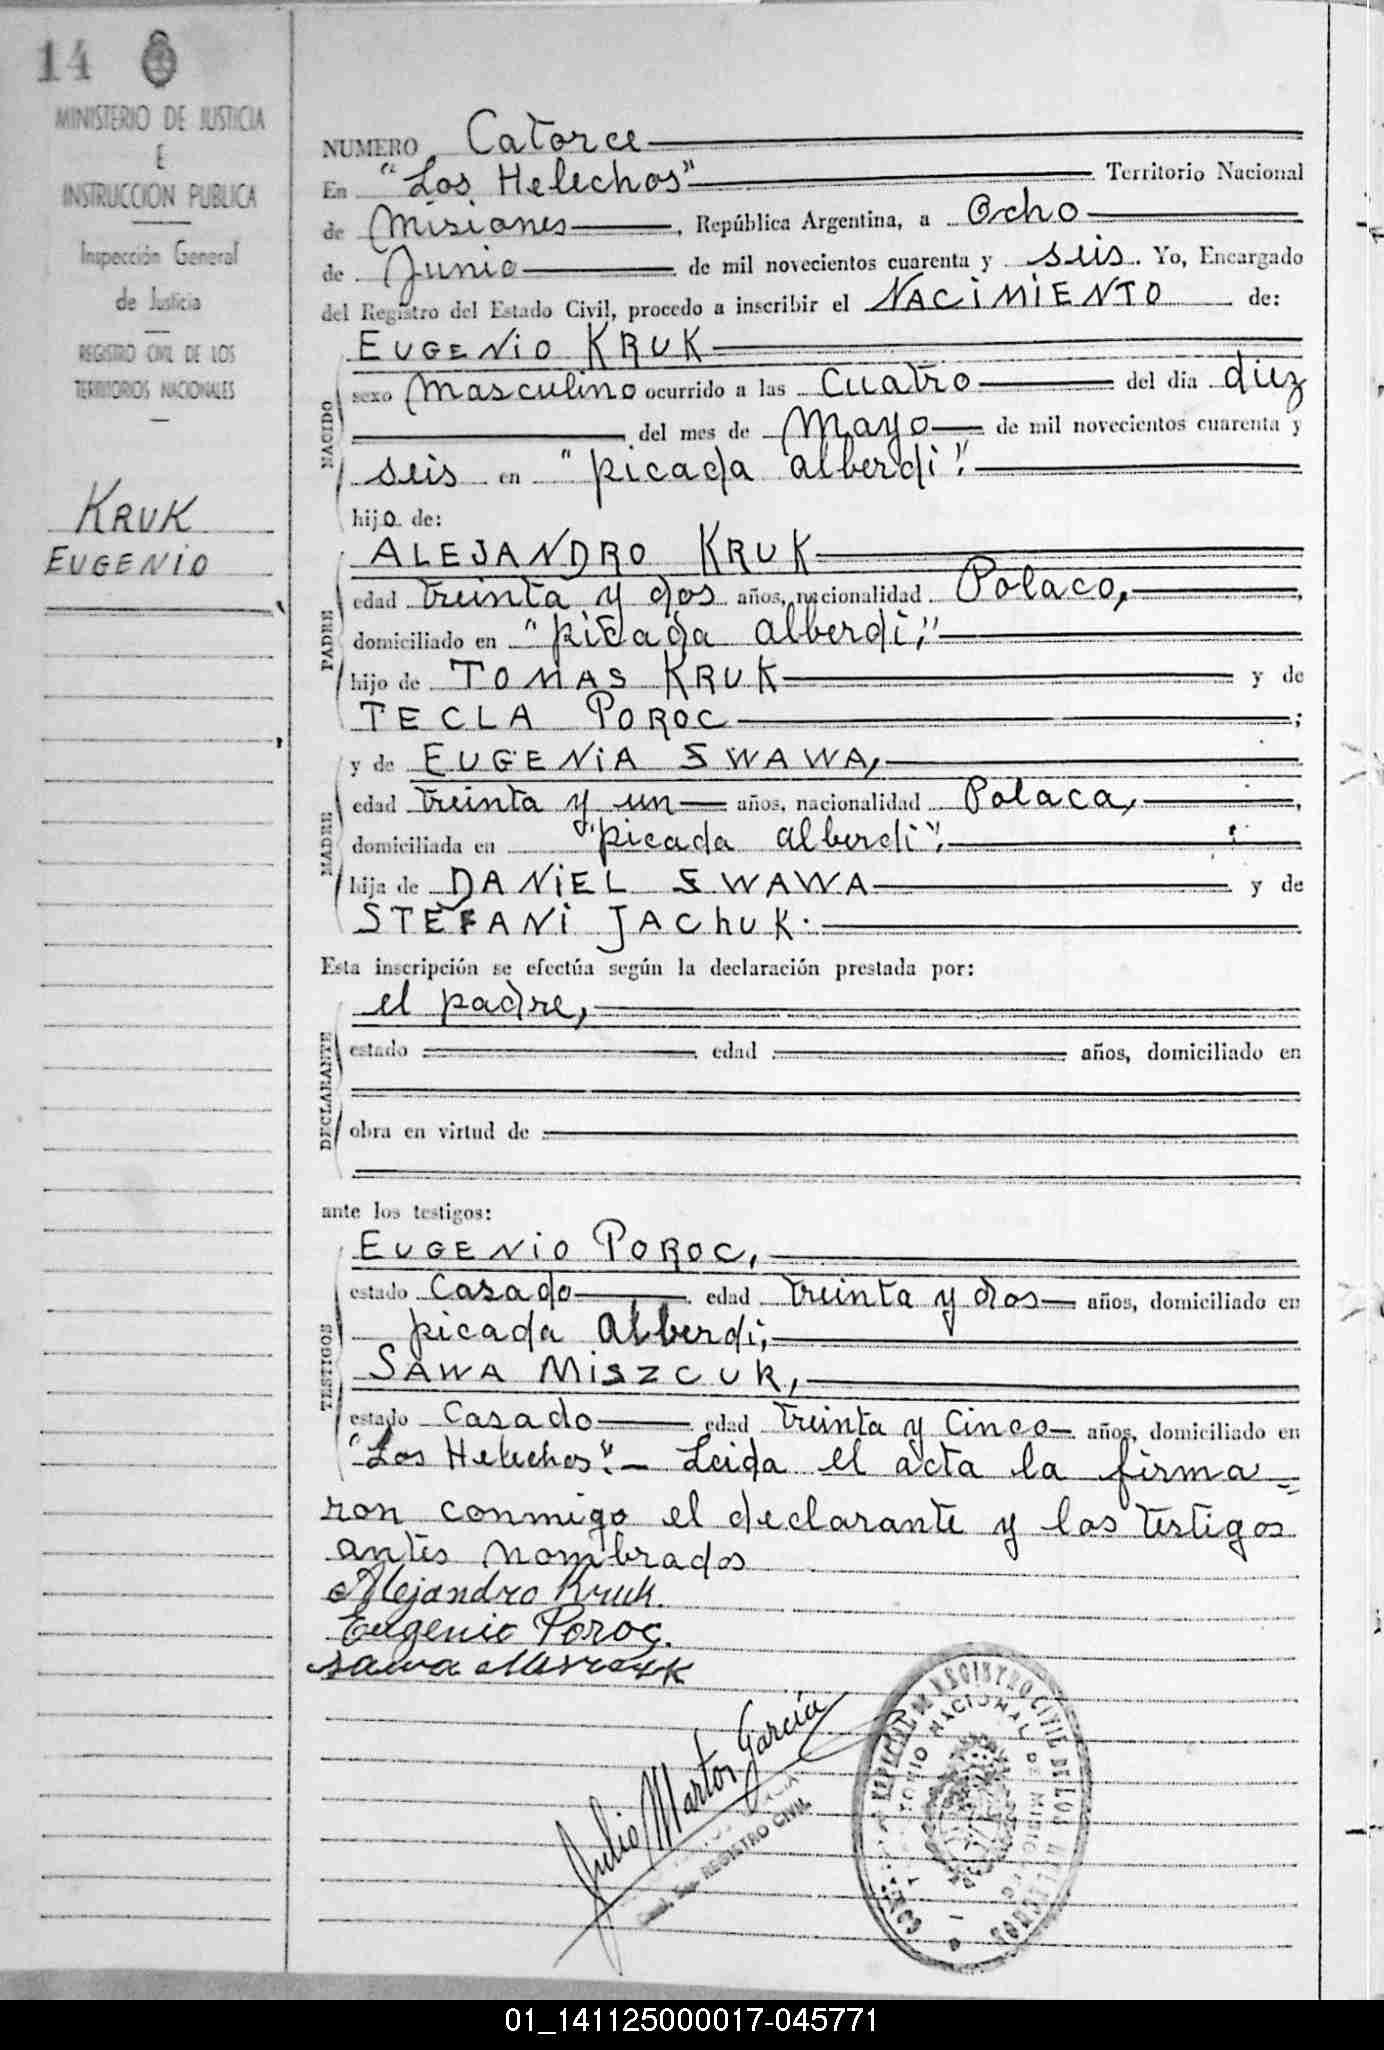 14
MINISTERIO DE JUSTICIA
E
INSTRUCCION PUBLICA
Inspección General
de Justicia
REGISTRO CIVIL DE LOS
TERRITORIOS NACIONALES
KRUK
EUGENIO
NUMERO Catorce
En "Los Helechos" Territorio Nacional
de Misiones, República Argentina, a Ocho
de Junio de mil novecientos cuarenta y seis. Yo, Encargado
del Registro del Estado Civil, procedo a inscribir el NACIMIENTO de:
NACIDO
EUGENIO KRUK
sexo Masculino ocurrido a las Cuatro del día diez
del mes de Mayo de mil novecientos cuarenta y
seis en "picada alberdi".
hijo de:
PADRE
ALEJANDRO KRUK
edad treinta y dos años, nacionalidad Polaco,
domiciliado en "picada alberdi",
hijo de TOMAS KRUK y de
TECLA POROC ;
MADRE
y de EUGENIA SWAWA,
edad treinta y un años, nacionalidad Polaca,
domiciliada en "picada alberdi".
hija de DANIEL SWAWA y de
STEFANI JACHUK.
Esta inscripción se efectúa según la declaración prestada por:
DECLARANTE
el padre,
estado edad años, domiciliado en
obra en virtud de
ante los testigos:
TESTIGOS
EUGENIO POROC,
estado Casado edad treinta y dos años, domiciliado en
picada Alberdi,
SAWA MISZCUK,
estado Casado edad treinta y cinco años, domiciliado en
"Los Helechos".- Leida el acta la firma=
ron conmigo el declarante y los testigos
antes nombrados
Alejandro Kruk.
Eugenio Poroc.
Sawa
Julio Martos García
REGISTRO CIVIL
REGISTRO CIVIL DE LOS
NACIONAL DE MISIONES
01_141125000017-045771